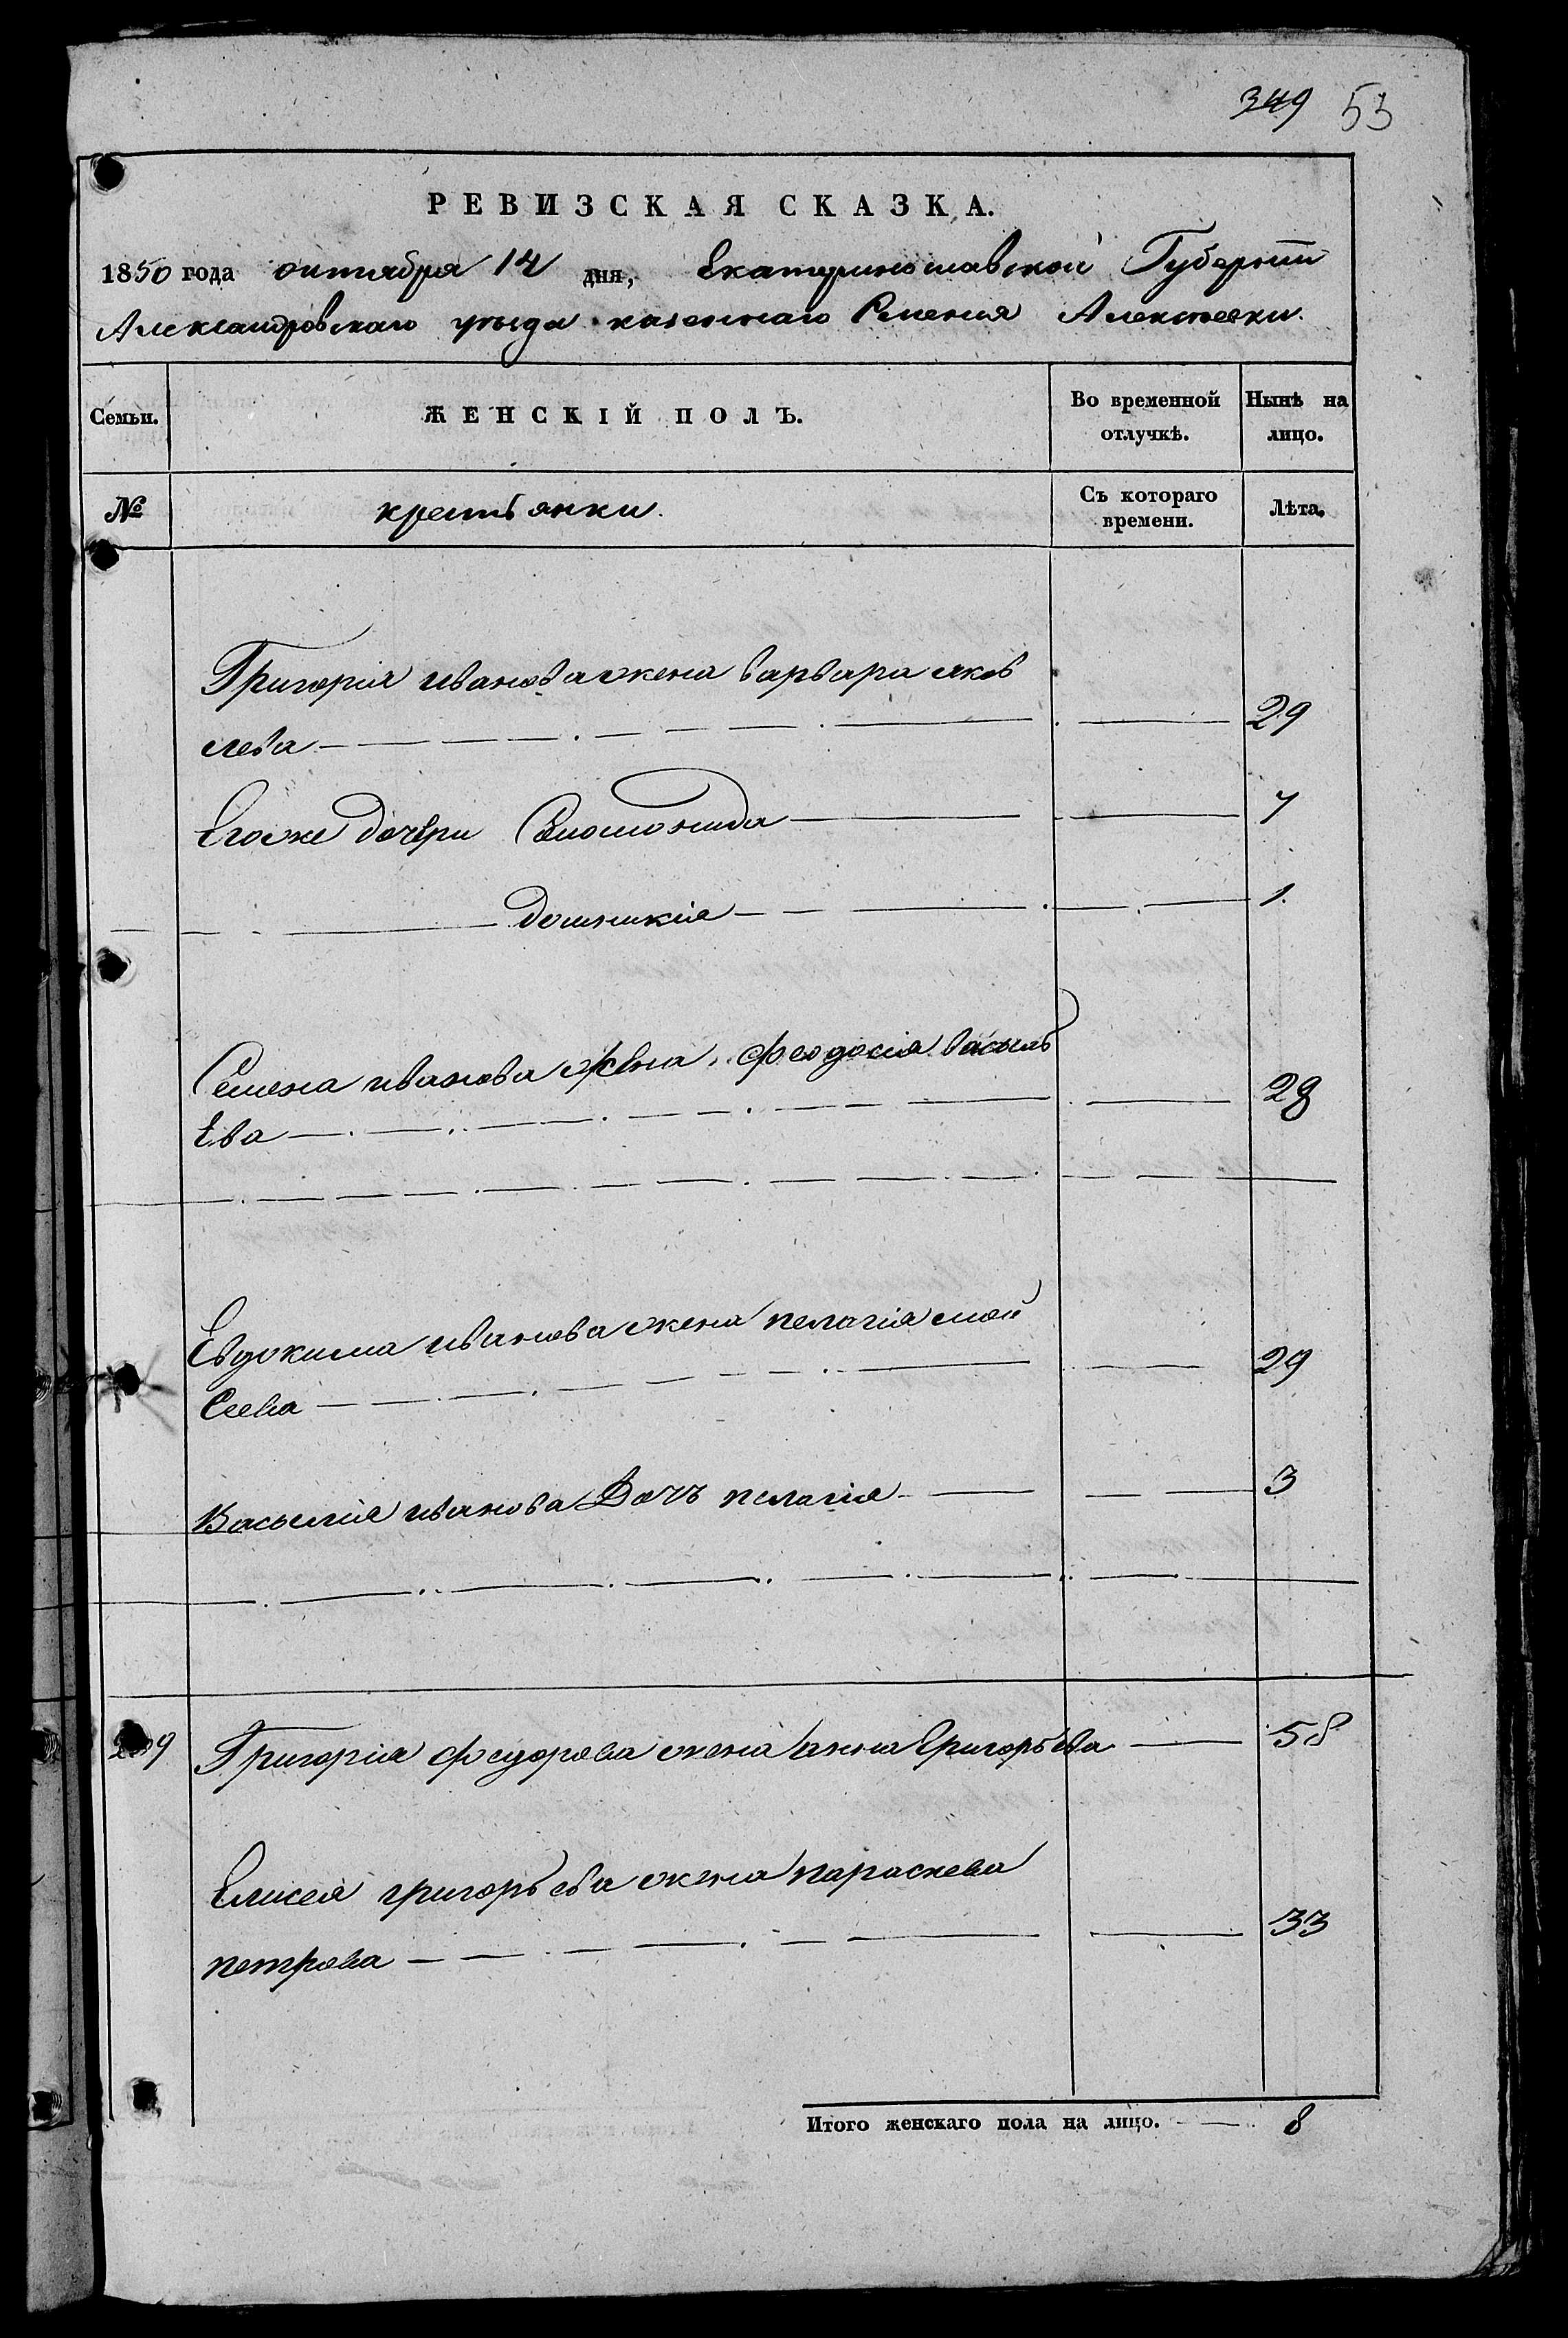 349 53
РЕВИЗСКАЯ СКАЗКА.
1850 года октября 14 дня, Екатеринославской Губернiи
Александровскаго уезда казеннаго Селения Алексеевки.
Семьи. ЖЕНСКIЙ ПОЛЪ. Во временной отлучкѣ. Нынѣ на лицо.
№ крестьянки. Съ котораго времени. Лѣта.
Григорiя иванова жена варвара яков
лева 29
Егоже дочери 7
1.
Семена иванова жена, феодосiя василь
Ева 28
Евдокима иванова жена пелагiя мой
Сеева 29
Василiя иванова Дочъ пелагiя 3
9 Григорiя федорова жена анна Григорьева 58
Елисея григорьева жена параскева
петрова 33
Итого женскаго пола на лицо. 8